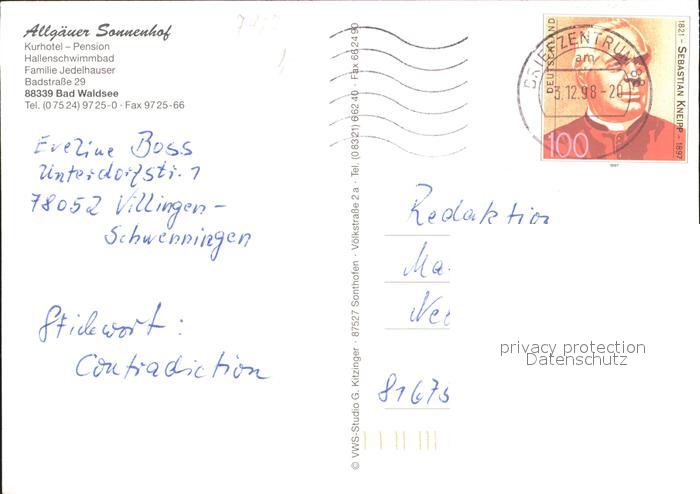 Allgäuer Sonnenhof
Kurhotel – Pension
Hallenschwimmbad
Familie Jedelhauser
Badstraße 29
88339 Bad Waldsee
Tel. (0 75 24) 97 25-0 · Fax 97 25-66
Eveline Boss
Unterdorfstr. 1
78052 Villingen-
Schwenningen
Stichwort:
Contradiction
© VWS-Studio G. Kitzinger · 87527 Sonthofen · Völkstraße 2 a · Tel. (0 83 21) 6 62 40 · Fax 6 62 4 90
DEUTSCHLAND
1821 – SEBASTIAN KNEIPP – 1897
100
1997
BRIEFZENTRUM 88
am
3.12.98-20
Redaktion
Ma
Ne
81675
privacy protection
Datenschutz